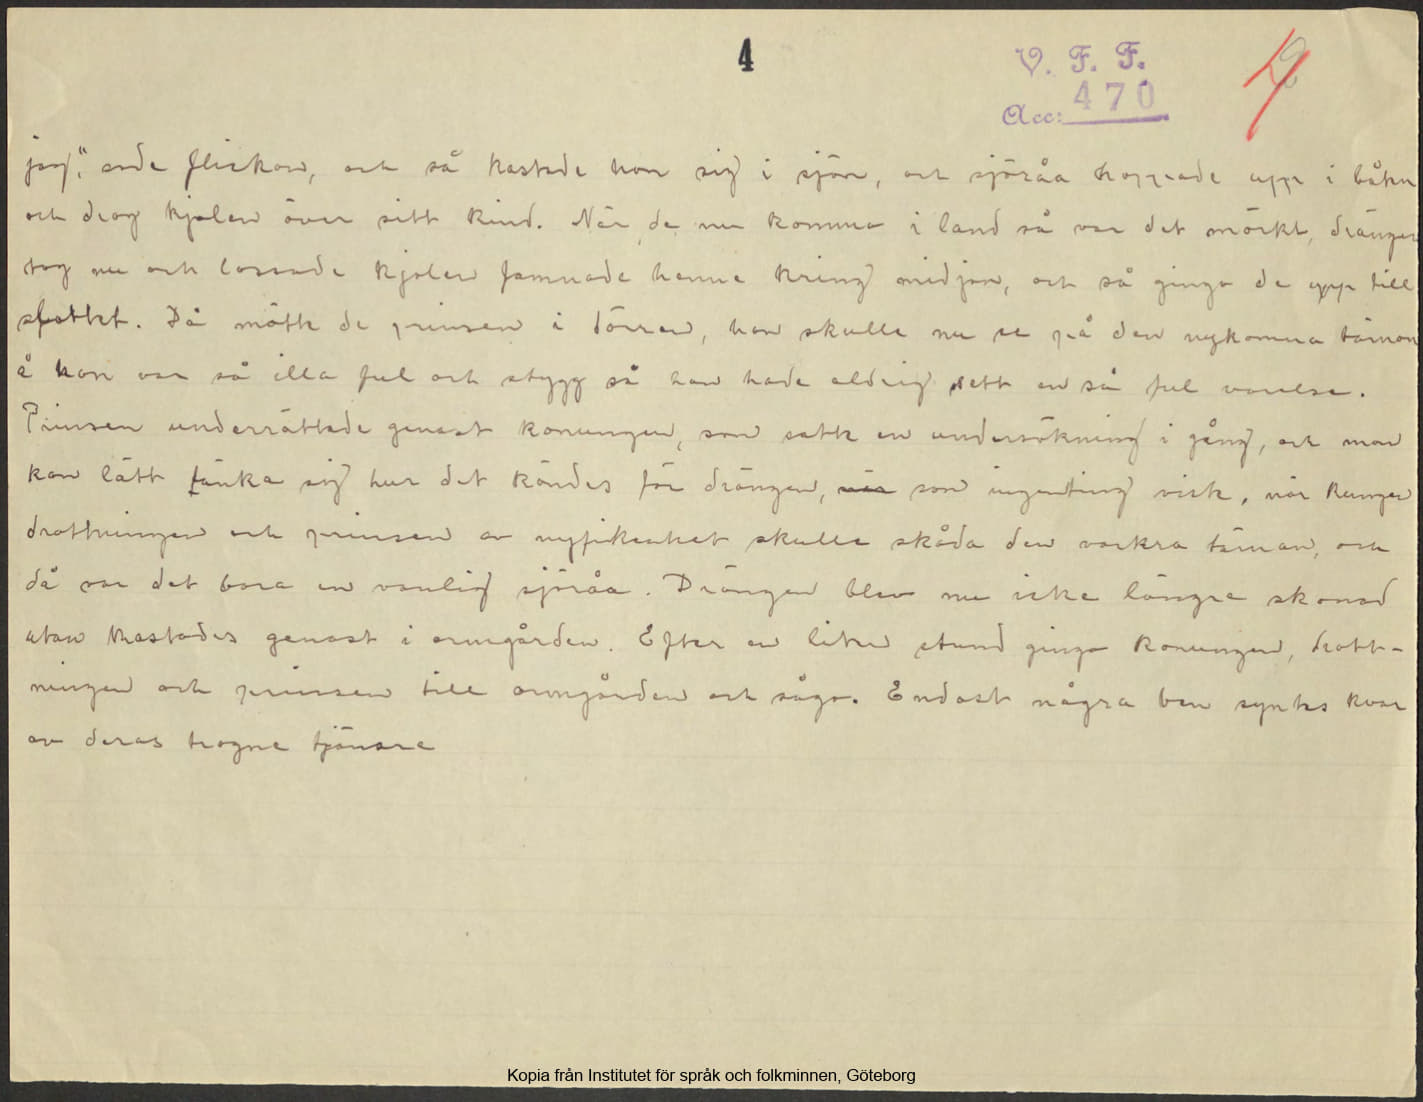 4
V. F. F.
Acc: 470
jag", sade flickan, och så kastade hon sig i sjön, och sjöråa hoppade upp i båten
och drog kjolen över sitt kind. När de nu kommo i land så var det mörkt, drängen
tog nu och lossade kjolen famnade henne kring midjan, och så gingo de upp till
slottet. Då mötte de prinsen i dörren, han skulle nu se på den nykomna tärnan
å hon var så illa ful och stygg så han hade aldrig sett en så ful varelse.
Prinsen underrättade genast konungen, som satte en undersökning i gång, och man
kan lätt tänka sig hur det kändes för drängen, när som ingenting viste, när kungen
drottningen och prinsen av nyfikenhet skulle skåda den vackra tärnan, och
då var det bara en vanlig sjöråa. Drängen blev nu icke längre skonad
utan kastades genast i ormgården. Efter en liten stund gingo konungen, drott-
ningen och prinsen till ormgården och sågo. Endast några ben syntes kvar
av deras trogne tjänare
Kopia från Institutet för språk och folkminnen, Göteborg